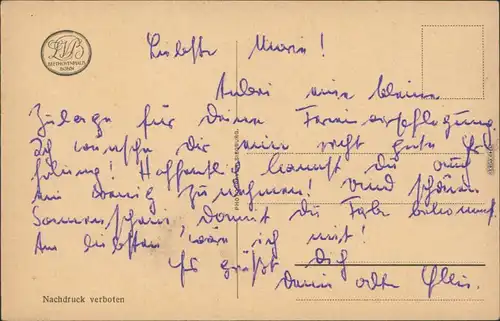 LVB
BEETHOVENHAUS
BONN
Liebste Marie!
Anbei eine kleine
Zulage für deine Ferienverpflegung
Ich wünsche dir eine recht gute Er-
holung! Hoffentlich kannst du auch
ein wenig zunehmen! und schönen
Sonnenschein, damit du Farbe bekommst.
Am liebsten wäre ich mit!
Es grüßt dich
dein alte
Nachdruck verboten